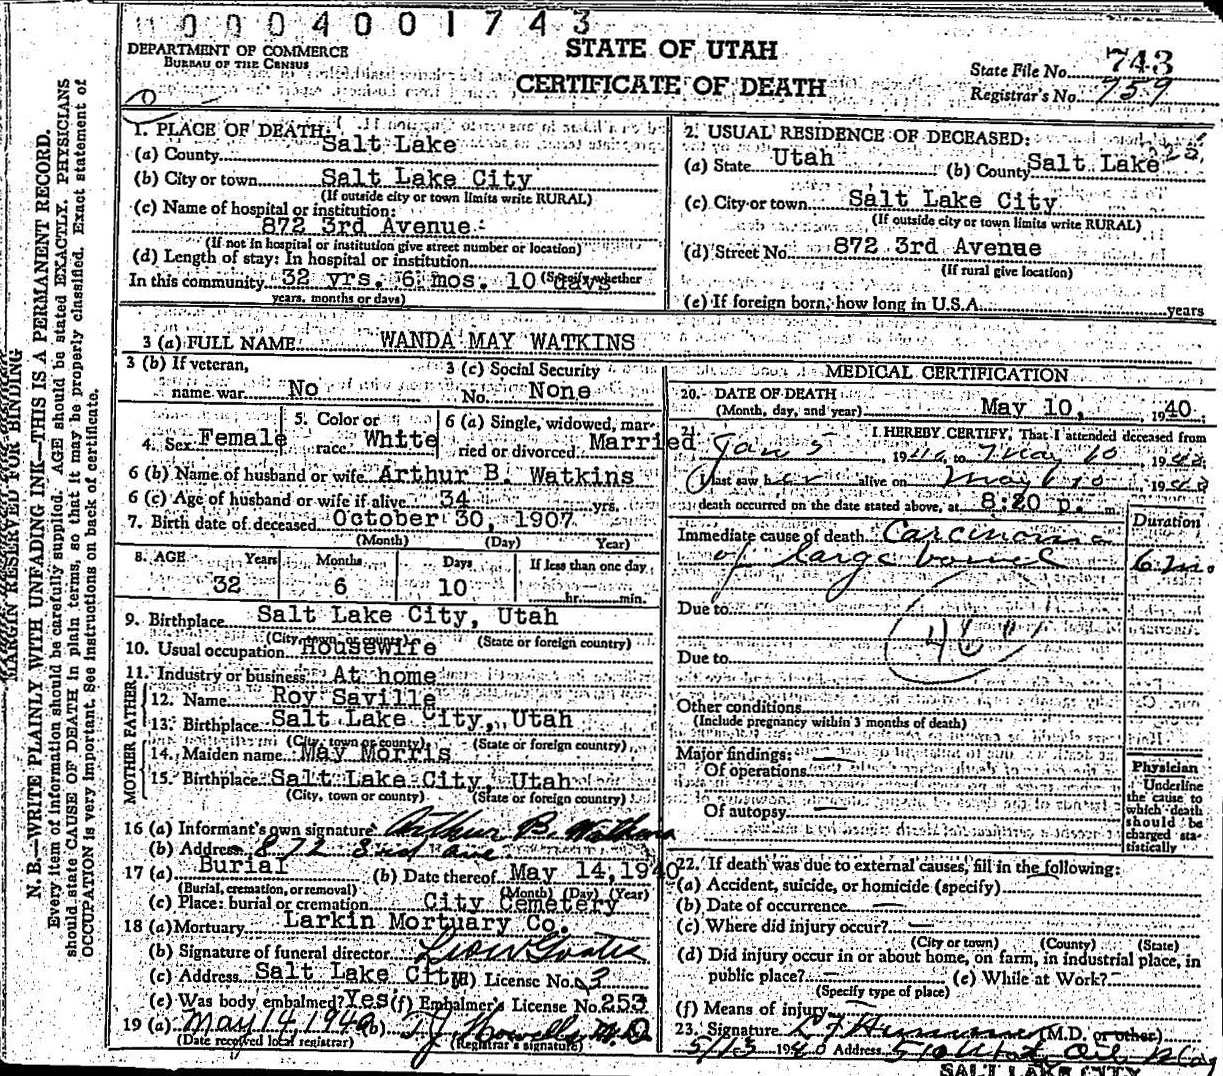 0004001743
DEPARTMENT OF COMMERCE
BUREAU OF THE CENSUS
STATE OF UTAH
CERTIFICATE OF DEATH
State File No. 743
Registrar's No. 759
1. PLACE OF DEATH:
(a) County Salt Lake
(b) City or town Salt Lake City
(If outside city or town limits write RURAL)
(c) Name of hospital or institution:
872 3rd Avenue
(If not in hospital or institution give street number or location)
(d) Length of stay: In hospital or institution
In this community 32 yrs. 6 mos. 10 days (Specify whether
years, months or days)
2. USUAL RESIDENCE OF DECEASED:
(a) State Utah (b) County Salt Lake
(c) City or town Salt Lake City
(If outside city or town limits write RURAL)
(d) Street No. 872 3rd Avenue
(If rural give location)
(e) If foreign born, how long in U.S.A. years
3 (a) FULL NAME WANDA MAY WATKINS
3 (b) If veteran,
name war No
3 (c) Social Security
No. None
4. Sex Female
5. Color or
race White
6 (a) Single, widowed, mar-
ried or divorced Married
6 (b) Name of husband or wife Arthur B. Watkins
6 (c) Age of husband or wife if alive 34 yrs.
7. Birth date of deceased October 30, 1907
(Month) (Day) Year)
8. AGE Years Months Days If less than one day
32 6 10 hr. min.
9. Birthplace Salt Lake City, Utah
(City, town or county) (State or foreign country)
10. Usual occupation Housewife
11. Industry or business At home
FATHER
12. Name Roy Saville
13. Birthplace Salt Lake City, Utah
(City, town or county) (State or foreign country)
MOTHER
14. Maiden name May Morris
15. Birthplace Salt Lake City, Utah
(City, town or county) (State or foreign country)
16 (a) Informant's own signature Arthur B. Watkins
(b) Address 872 3rd ave.
17 (a) Burial (b) Date thereof May 14, 1940
(Burial, cremation, or removal) (Month) (Day) (Year)
(c) Place: burial or cremation City Cemetery
18 (a) Mortuary Larkin Mortuary Co.
(b) Signature of funeral director
(c) Address Salt Lake City (d) License No. 3
(e) Was body embalmed? Yes (f) Embalmer's License No. 253
19 (a) May 14, 1940 (b) T.J. Howells M.D.
(Date received local registrar) (Registrar's signature)
MEDICAL CERTIFICATION
20. DATE OF DEATH
(Month, day, and year) May 10, 1940.
21. I HEREBY CERTIFY, That I attended deceased from
Jan 5, 1940 to May 10, 1940
I last saw her alive on May 10 1940
death occurred on the date stated above, at 8:20 p. m.
Immediate cause of death Carcinoma
of large bowel
Duration
6 m.
Due to
Due to
Other conditions
(Include pregnancy within 3 months of death)
Major findings:
Of operations
Of autopsy
Physician
Underline
the cause to
which death
should be
charged sta-
tistically
22. If death was due to external causes, fill in the following:
(a) Accident, suicide, or homicide (specify)
(b) Date of occurrence
(c) Where did injury occur?
(City or town) (County) (State)
(d) Did injury occur in or about home, on farm, in industrial place, in
public place? (e) While at Work?
(Specify type of place)
(f) Means of injury
23. Signature (M.D. or other)
5/13 1940 Address
SALT LAKE CITY
MARGIN RESERVED FOR BINDING
N. B.—WRITE PLAINLY WITH UNFADING INK—THIS IS A PERMANENT RECORD.
Every item of information should be carefully supplied. AGE should be stated EXACTLY. PHYSICIANS
should state CAUSE OF DEATH in plain terms, so that it may be properly classified. Exact statement of
OCCUPATION is very important. See instructions on back of certificate.